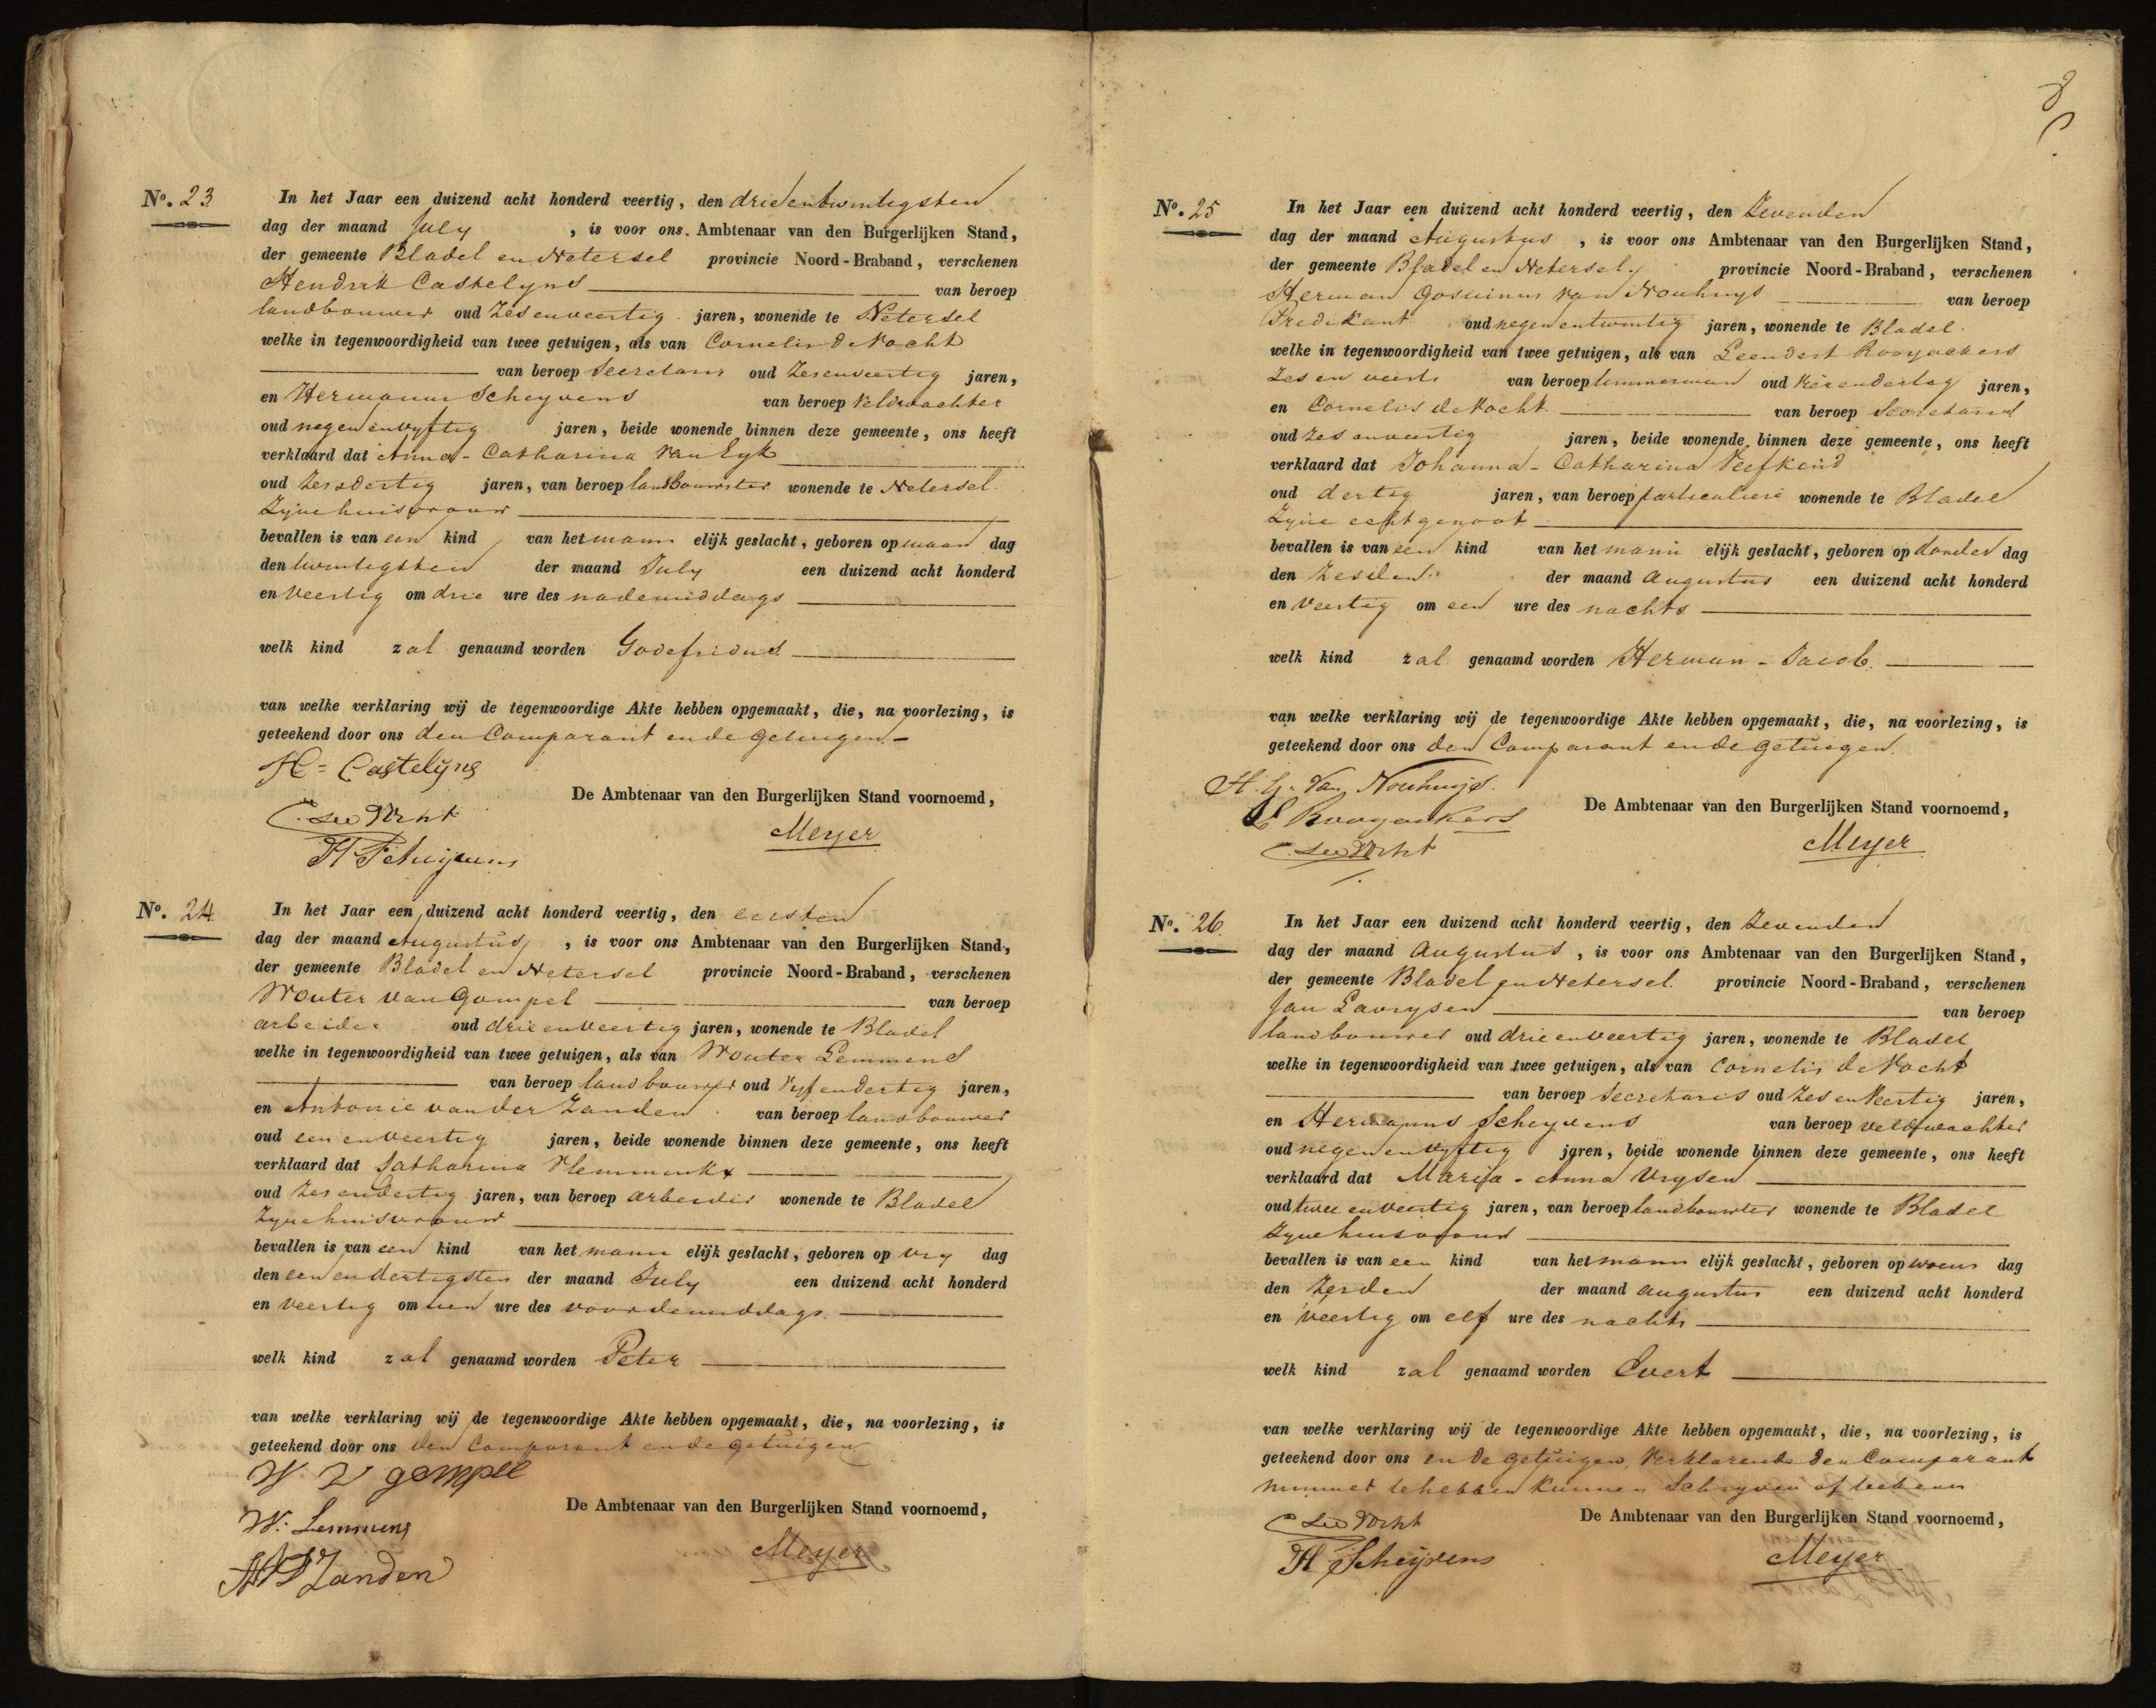 No. 23
In het Jaar een duizend acht honderd veertig, den drieentwintigsten
dag der maand July , is voor ons Ambtenaar van den Burgerlijken Stand,
der gemeente Bladel en Netersel provincie Noord-Braband, verschenen
Hendrik Castelyns van beroep
landbouwer oud Zesenveertig jaren, wonende te Netersel
welke in tegenwoordigheid van twee getuigen, als van Cornelis de Vocht
van beroep Secretaris oud Zesenveertig jaren,
en Hermanus Scheyvens van beroep Veldwachter
oud negenenvyftig jaren, beide wonende binnen deze gemeente, ons heeft
verklaard dat Anna-Catharina van Eyk
oud jaren, van beroep landbouwster wonende te Netersel
Zyne huisvrouw
bevallen is van een kind van het mann elijk geslacht, geboren op maan dag
den twintigsten der maand July een duizend acht honderd
en Veertig om drie ure des nademiddags
welk kind zal genaamd worden Godefridus
van welke verklaring wij de tegenwoordige Akte hebben opgemaakt, die, na voorlezing, is
geteekend door ons den Comparant ende getuigen.
H= Castelijns
De Ambtenaar van den Burgerlijken Stand voornoemd,
C. de Vocht
Meyer
H Scheijvens
No. 24
In het Jaar een duizend acht honderd veertig, den eersten
dag der maand Augustus , is voor ons Ambtenaar van den Burgerlijken Stand,
der gemeente Bladel en Netersel provincie Noord-Braband, verschenen
Wouter van Gompel van beroep
arbeider oud drieenveertig jaren, wonende te Bladel
welke in tegenwoordigheid van twee getuigen, als van Wouter Lemmens
van beroep landbouwer oud Vyfendertig jaren,
en Antonie van der Zanden van beroep landbouwer
oud eenenveertig jaren, beide wonende binnen deze gemeente, ons heeft
verklaard dat Catharina
oud Zesendertig jaren, van beroep arbeider wonende te Bladel
Zyne huisvrouw
bevallen is van een kind van het mann elijk geslacht, geboren op Vry dag
den eenendertigsten der maand July een duizend acht honderd
en Veertig om ure des voordemiddags
welk kind zal genaamd worden Peter
van welke verklaring wij de tegenwoordige Akte hebben opgemaakt, die, na voorlezing, is
geteekend door ons den Comparant ende getuigen
W. V gompel
De Ambtenaar van den Burgerlijken Stand voornoemd,
W. Lemmens
Meyer
Zanden
No. 25
In het Jaar een duizend acht honderd veertig, den Zevenden
dag der maand Augustus , is voor ons Ambtenaar van den Burgerlijken Stand,
der gemeente Bladel en Netersel provincie Noord-Braband, verschenen
Herman Gosuinus van Nouhuys van beroep
Predikant oud negenentwintig jaren, wonende te Bladel
welke in tegenwoordigheid van twee getuigen, als van Leendert Rooyackers
van beroep timmerman oud jaren,
en Cornelis de Vocht van beroep Secretaris
oud Zesenveertig jaren, beide wonende binnen deze gemeente, ons heeft
verklaard dat Johanna-Catharina Veefkind
oud dertig jaren, van beroep particuliere wonende te Bladel
Zyne echtgenoot
bevallen is van een kind van het mann elijk geslacht, geboren op donder dag
den Zesden der maand Augustus een duizend acht honderd
en Veertig om een ure des nachts
welk kind zal genaamd worden Herman-Jacob.
van welke verklaring wij de tegenwoordige Akte hebben opgemaakt, die, na voorlezing, is
geteekend door ons den Comparant ende getuigen.
H. G. Van Nouhuijs.
De Ambtenaar van den Burgerlijken Stand voornoemd,
L Rooyackers
Meyer
C. de Vocht
No. 26
In het Jaar een duizend acht honderd veertig, den Zevenden
dag der maand Augustus , is voor ons Ambtenaar van den Burgerlijken Stand,
der gemeente Bladel en Netersel provincie Noord-Braband, verschenen
Jan Lavrysen van beroep
landbouwer oud drieenveertig jaren, wonende te Bladel
welke in tegenwoordigheid van twee getuigen, als van Cornelis de Vocht
van beroep Secretaris oud Zesenveertig jaren,
en Hermanus Scheyvens van beroep veldwachter
oud negenenvyftig jaren, beide wonende binnen deze gemeente, ons heeft
verklaard dat Maria-Anna Vrysen
oud tweeenveertig jaren, van beroep landbouwster wonende te Bladel
Zyne huisvrouw
bevallen is van een kind van het mann elijk geslacht, geboren op woens dag
den der maand augustus een duizend acht honderd
en Veertig om elf ure des nachts
welk kind zal genaamd worden Evert
van welke verklaring wij de tegenwoordige Akte hebben opgemaakt, die, na voorlezing, is
geteekend door ons ende getuigen, Verklarende den Comparant
nimmer te hebben kunnen Schryven of teekenen
De Ambtenaar van den Burgerlijken Stand voornoemd,
C de Vocht
Meyer
H Scheijvens